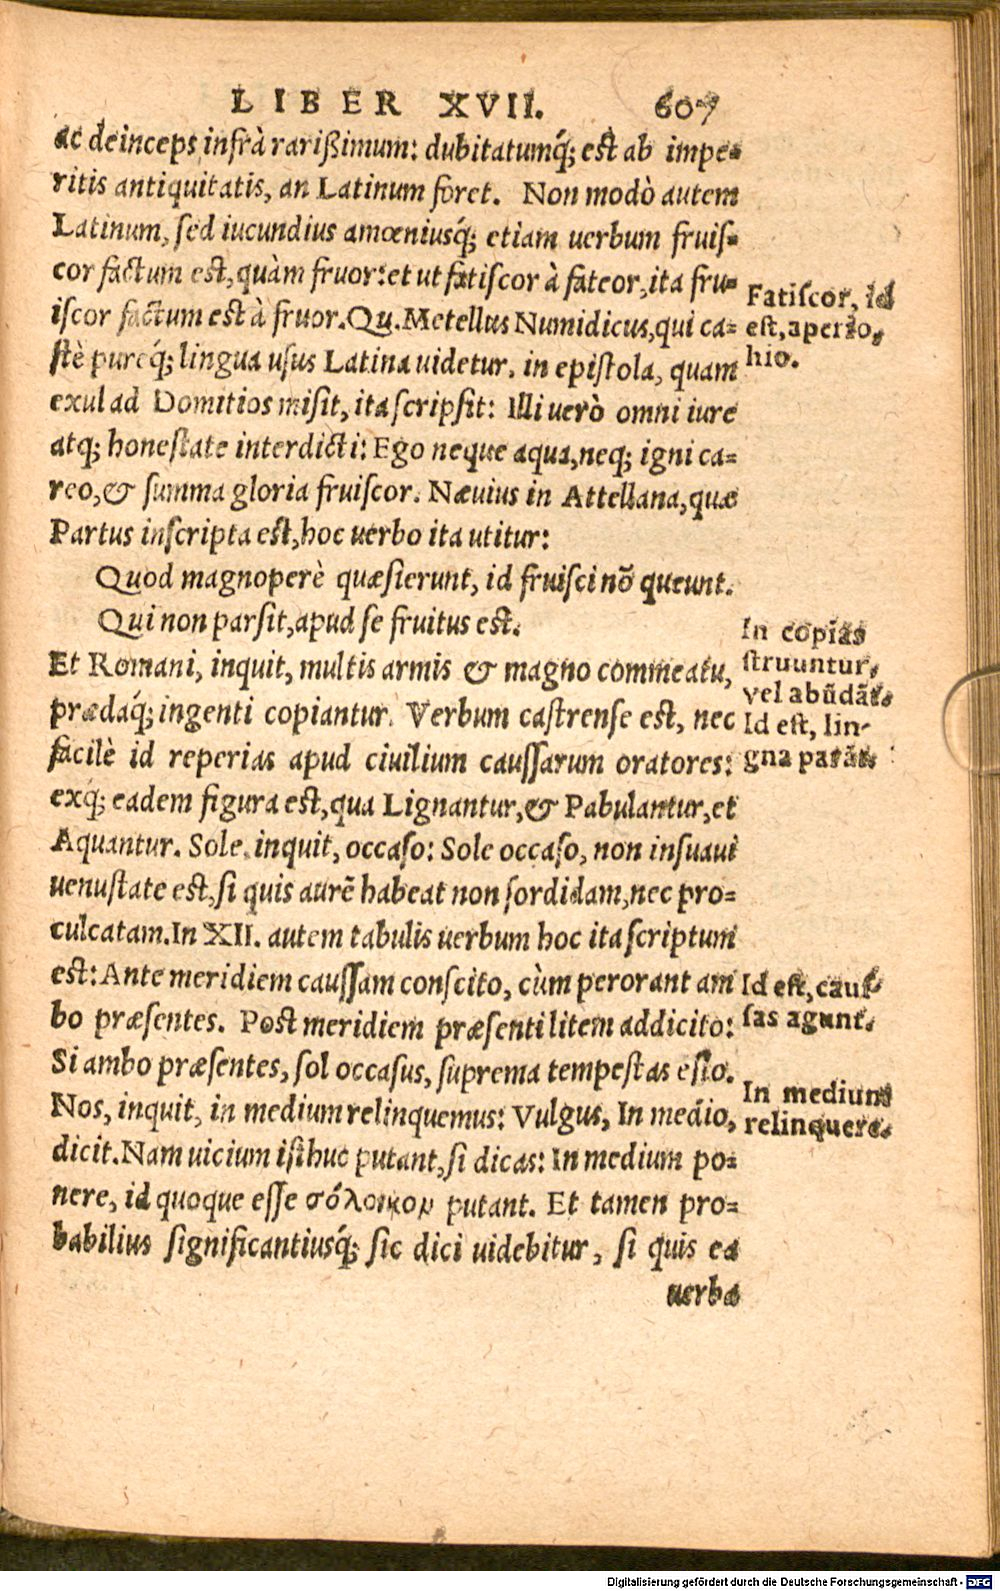 LIBER XVII. 607
ac deinceps infrà rarißimum: dubitatumq́; est ab impe-
ritis antiquitatis, an Latinum foret. Non modò autem
Latinum, sed iucundius amœniusq́; etiam uerbum fruis-
cor factum est, quàm fruor: et ut fatiscor à fateor, ita fru-
iscor factum est à fruor. Qu. Metellus Numidicus, qui ca-
stè pureq́; lingua usus Latina uidetur, in epistola, quam
exul ad Domitios misit, ita scripsit: Illi uerò omni iure
atq; honestate interdicti: Ego neque aqua, neq; igni ca-
reo, & summa gloria fruiscor. Næuius in Attellana, quæ
Partus inscripta est, hoc uerbo ita utitur:
Quod magnoperè quæsierunt, id fruisci nō queunt.
Qui non parsit, apud se fruitus est.
Et Romani, inquit, multis armis & magno commeatu,
prædaq́; ingenti copiantur. Verbum castrense est, nec
facilè id reperias apud ciuilium caussarum oratores:
exq́; eadem figura est, qua Lignantur, & Pabulantur, et
Aquantur. Sole, inquit, occaso: Sole occaso, non insuaui
uenustate est, si quis aurē habeat non sordidam, nec pro-
culcatam. In XII. autem tabulis uerbum hoc ita scriptum
est: Ante meridiem caussam conscito, cùm perorant am
bo præsentes. Post meridiem præsenti litem addicito:
Si ambo præsentes, sol occasus, suprema tempestas esto.
Nos, inquit, in medium relinquemus: Vulgus, In medio,
dicit. Nam uicium isthuc putant, si dicas: In medium po-
nere, id quoque esse σόλοικον putant. Et tamen pro-
babilius significantiusq́; sic dici uidebitur, si quis ea
uerba
Fatiscor, id
est, aperio,
hio.
In copias
struuntur,
vel abūdāt.
Id est, lin-
gna parāt.
Id est, caus-
sas agunt.
In medium
relinquere.
Digitalisierung gefördert durch die Deutsche Forschungsgemeinschaft - DFG